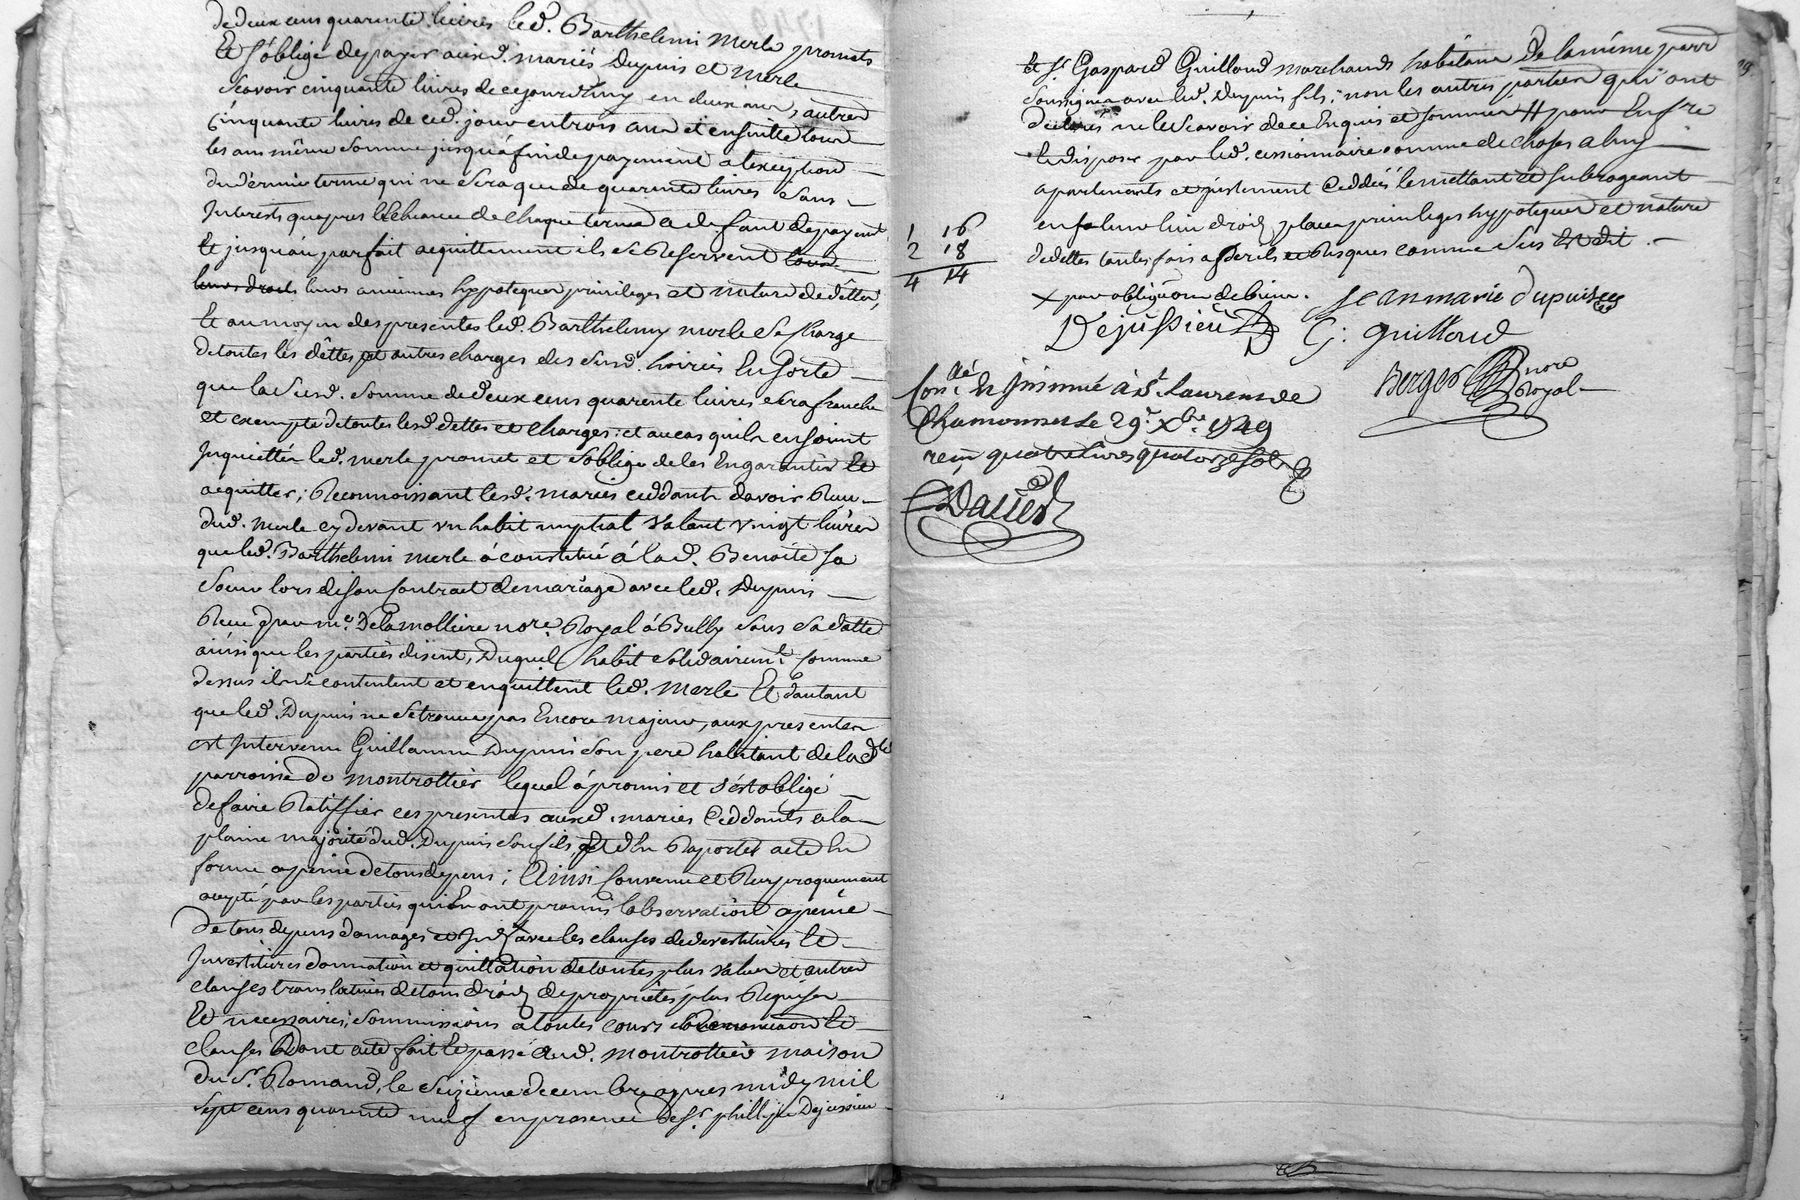 de deux cens quarente livres led. Barthelemi Merle promets
Et s'oblige de payer auxd. mariés Dupuis et Merle
Scavoir cinquante livres de ce jourdhuy en deux ans, autres
Cinquante livres de ced. jour en trois ans et ensuitte tous
les ans même Somme jusqu'a fin de payement a l'exception
du dérnier terme qui ne Sera que de quarente livres Sans
Interests qu'apres l'Echeance de Chaque terme a deffaut de payemt.
Et jusqu'au parfait acquittement ils se Reservent leurs
leurs droits leurs anciennes hypoteques privileges et nature de dêttes,
Et au moyen des presentes led. Barthelemy Merle Se Charge
de toutes les dêttes et autres charges des Susd. hoiries En Sorte
que la Susd. Somme de deux cens quarente livres Sera franche
et exempte de toutes lesd. dettes et charges: et au cas qu'ils en soint
Inquiettés led. Merle promet et s'oblige de les En garantir Et
acquitter; Reconnoissant lesd. mariés ceddants d'avoir Reçu
dud. Merle cy devant un habit nuptial Valant vingt livres
que led. Barthelemi Merle a constitué á lad. Benoite Sa
Soeur lors de son Contract de mariage avec led. Dupuis
Reçu par me. Delamolliere nore. Royal á Bully Sous Sa datte
ainsi que les parties disent, Duquel habit solidairemt. comme
dessus ils se contentent et en quittent led. Merle Et d'autant
que led. Dupuis ne Se trouve pas Encore majeur, aux presentes
est Intervenu Guillaume Dupuis Son pere habitant de lad.
parroisse de Montrottier lequel á promis et s'est obligé
de faire Ratiffier ces presentes auxd. mariés Ceddants a la
plaine majorité dud. Dupuis Son fils, et d'En Raporter acte En
forme a peine de tous depens; Ainsi Convenu et Reciproquement
accepté par les parties qui En ont promis l'observation a peine
de tous depens domages et Int. avec les clauses de devestitures Et
Investitures donnation et quittation de toutes plus Values et autres
clauses translatives de tous droits de proprietés plus Requises
Et necessaires, Soummissions a toutes cours Renonciaōn Et
clauses Dont acte fait Et passé Aud. Montrottier maison
du Sr. Romand, le Seizieme decembre apres midy mil
Sept cens quarente neuf en presence de Sr. phillipe Dejussieu
Et Sr. Gaspard Guilloud marchands habitans De la même parr
Soussignés avec led. Dupuis fils; non les autres parties qui ont
declaré ne le Scavoir de ce Enquis et sommés # pour En fre
Et disposer par led. cessionnaire comme de choses a luy
apartenants et justement Ceddées le mettant et Subrogeant
en Ses lieu droits place privileges hypoteques et nature
de dettes toutes fois a Ses perils et Risques comme dessus Est dit.
1 16
2 18
4 14
x par obligāon de biens. jean marie dupuis
Dejussieu G: guilloud
Berger nore
Royal
Con.lé Et Insinué á St. Laurens de
Chamousset le 29e. Xbre. 1749
reçu quatre livres quatorze sols
Dalier